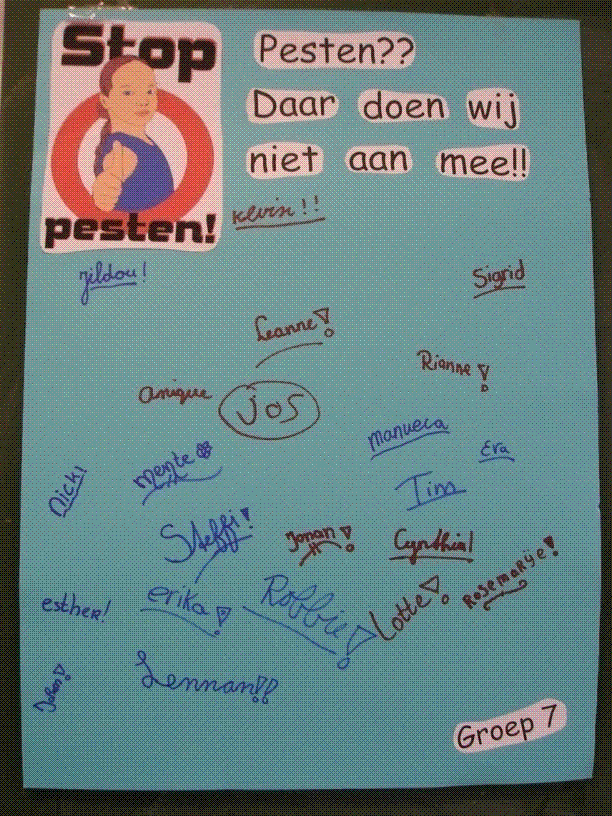 Stop
pesten!
Pesten??
Daar doen wij
niet aan mee!!
Kevin!!
jildou!
Sigrid
Leanne!
Rianne!
anique
Jos
manuela
Eva
Nicki
mente
Tim
Steffi!
Jonan!
Cynthia!
Rosemarije!
esther!
erika!
Robbie!
Lotte!
Lennan!!
Johan!
Groep 7